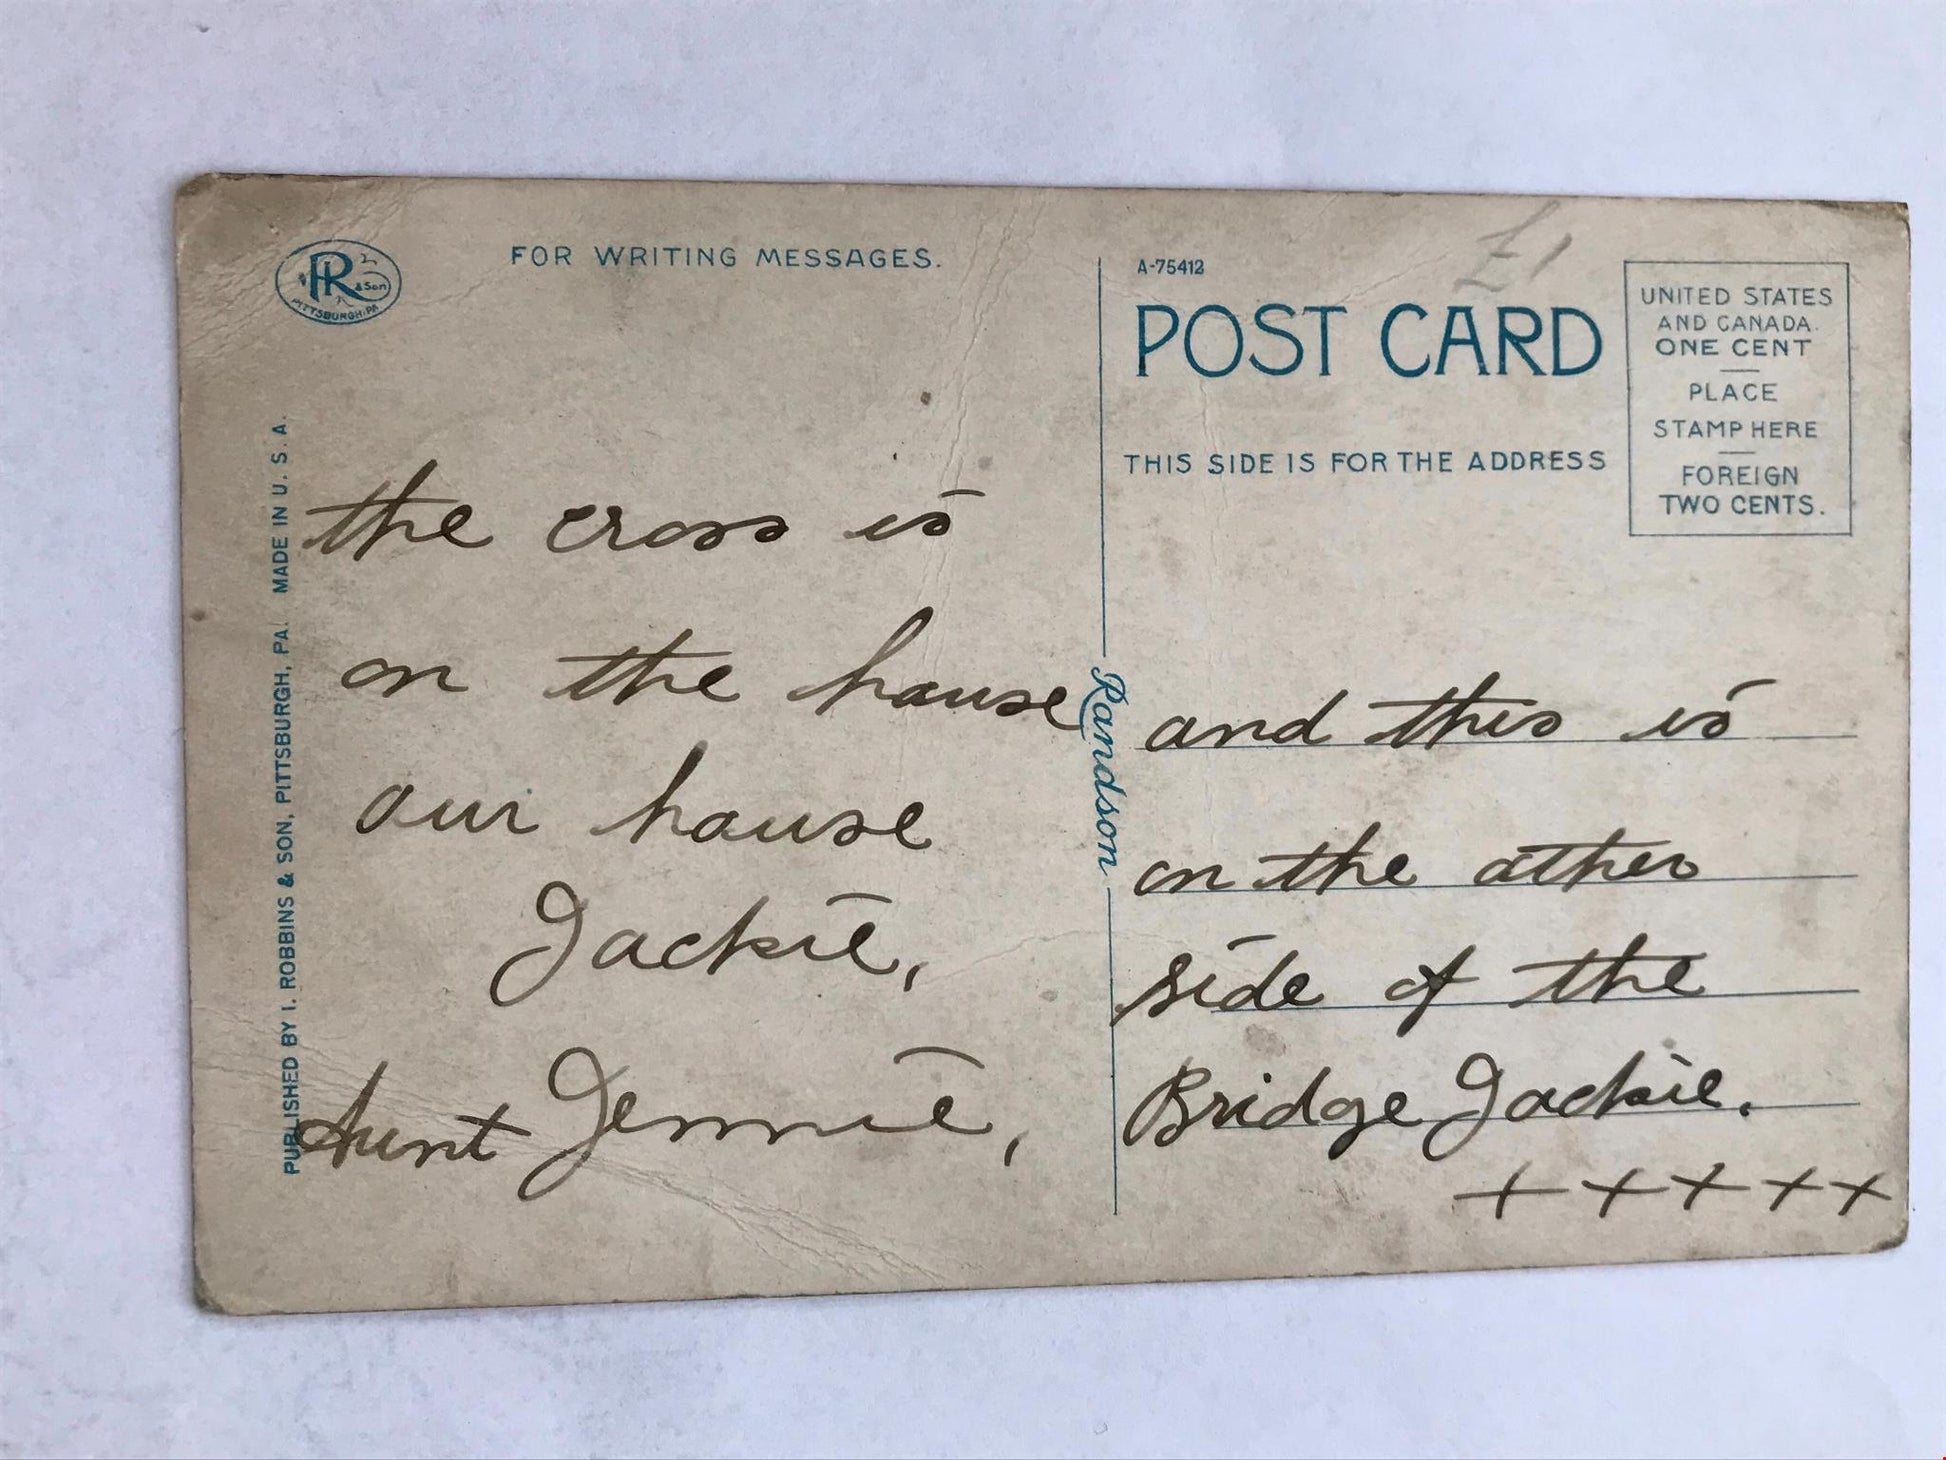 HR & Son
PITTSBURGH, PA
FOR WRITING MESSAGES.
the cross is
on the house
our house
Jackie,
Aunt Jennie,
PUBLISHED BY I. ROBBINS & SON, PITTSBURGH, PA. MADE IN U.S.A.
Randson
A-75412
£1
POST CARD
THIS SIDE IS FOR THE ADDRESS
UNITED STATES
AND CANADA.
ONE CENT
PLACE
STAMP HERE
FOREIGN
TWO CENTS.
and this is
on the other
side of the
Bridge Jackie.
+ + + + +